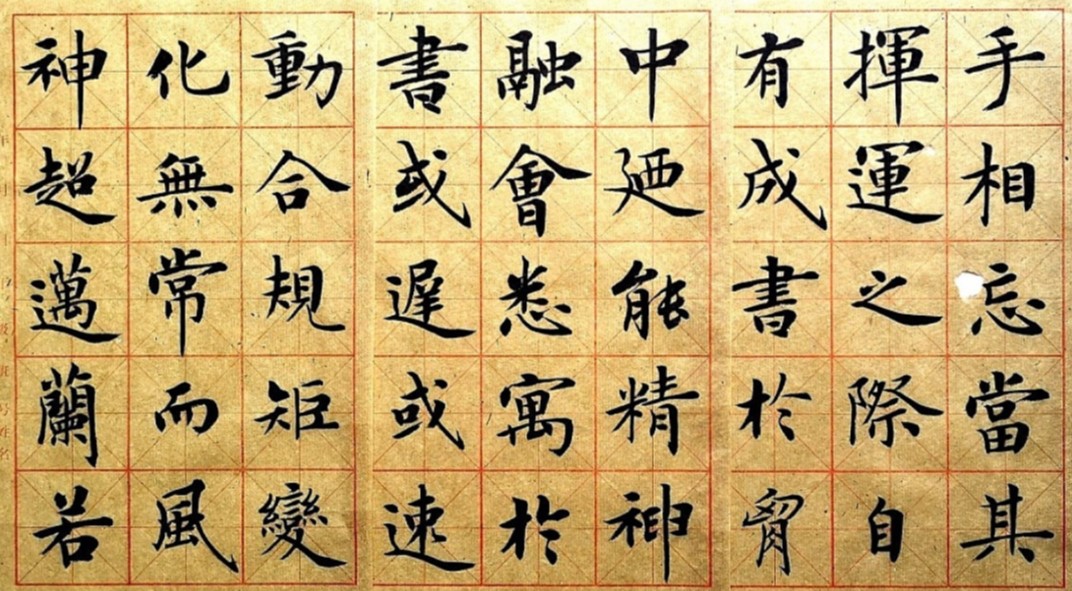 手相忘當其
揮運之際自
有成書於胷
中廼能精神
融會悉寓於
書或遲或速
動合規矩變
化無常而風
神超邁蘭若